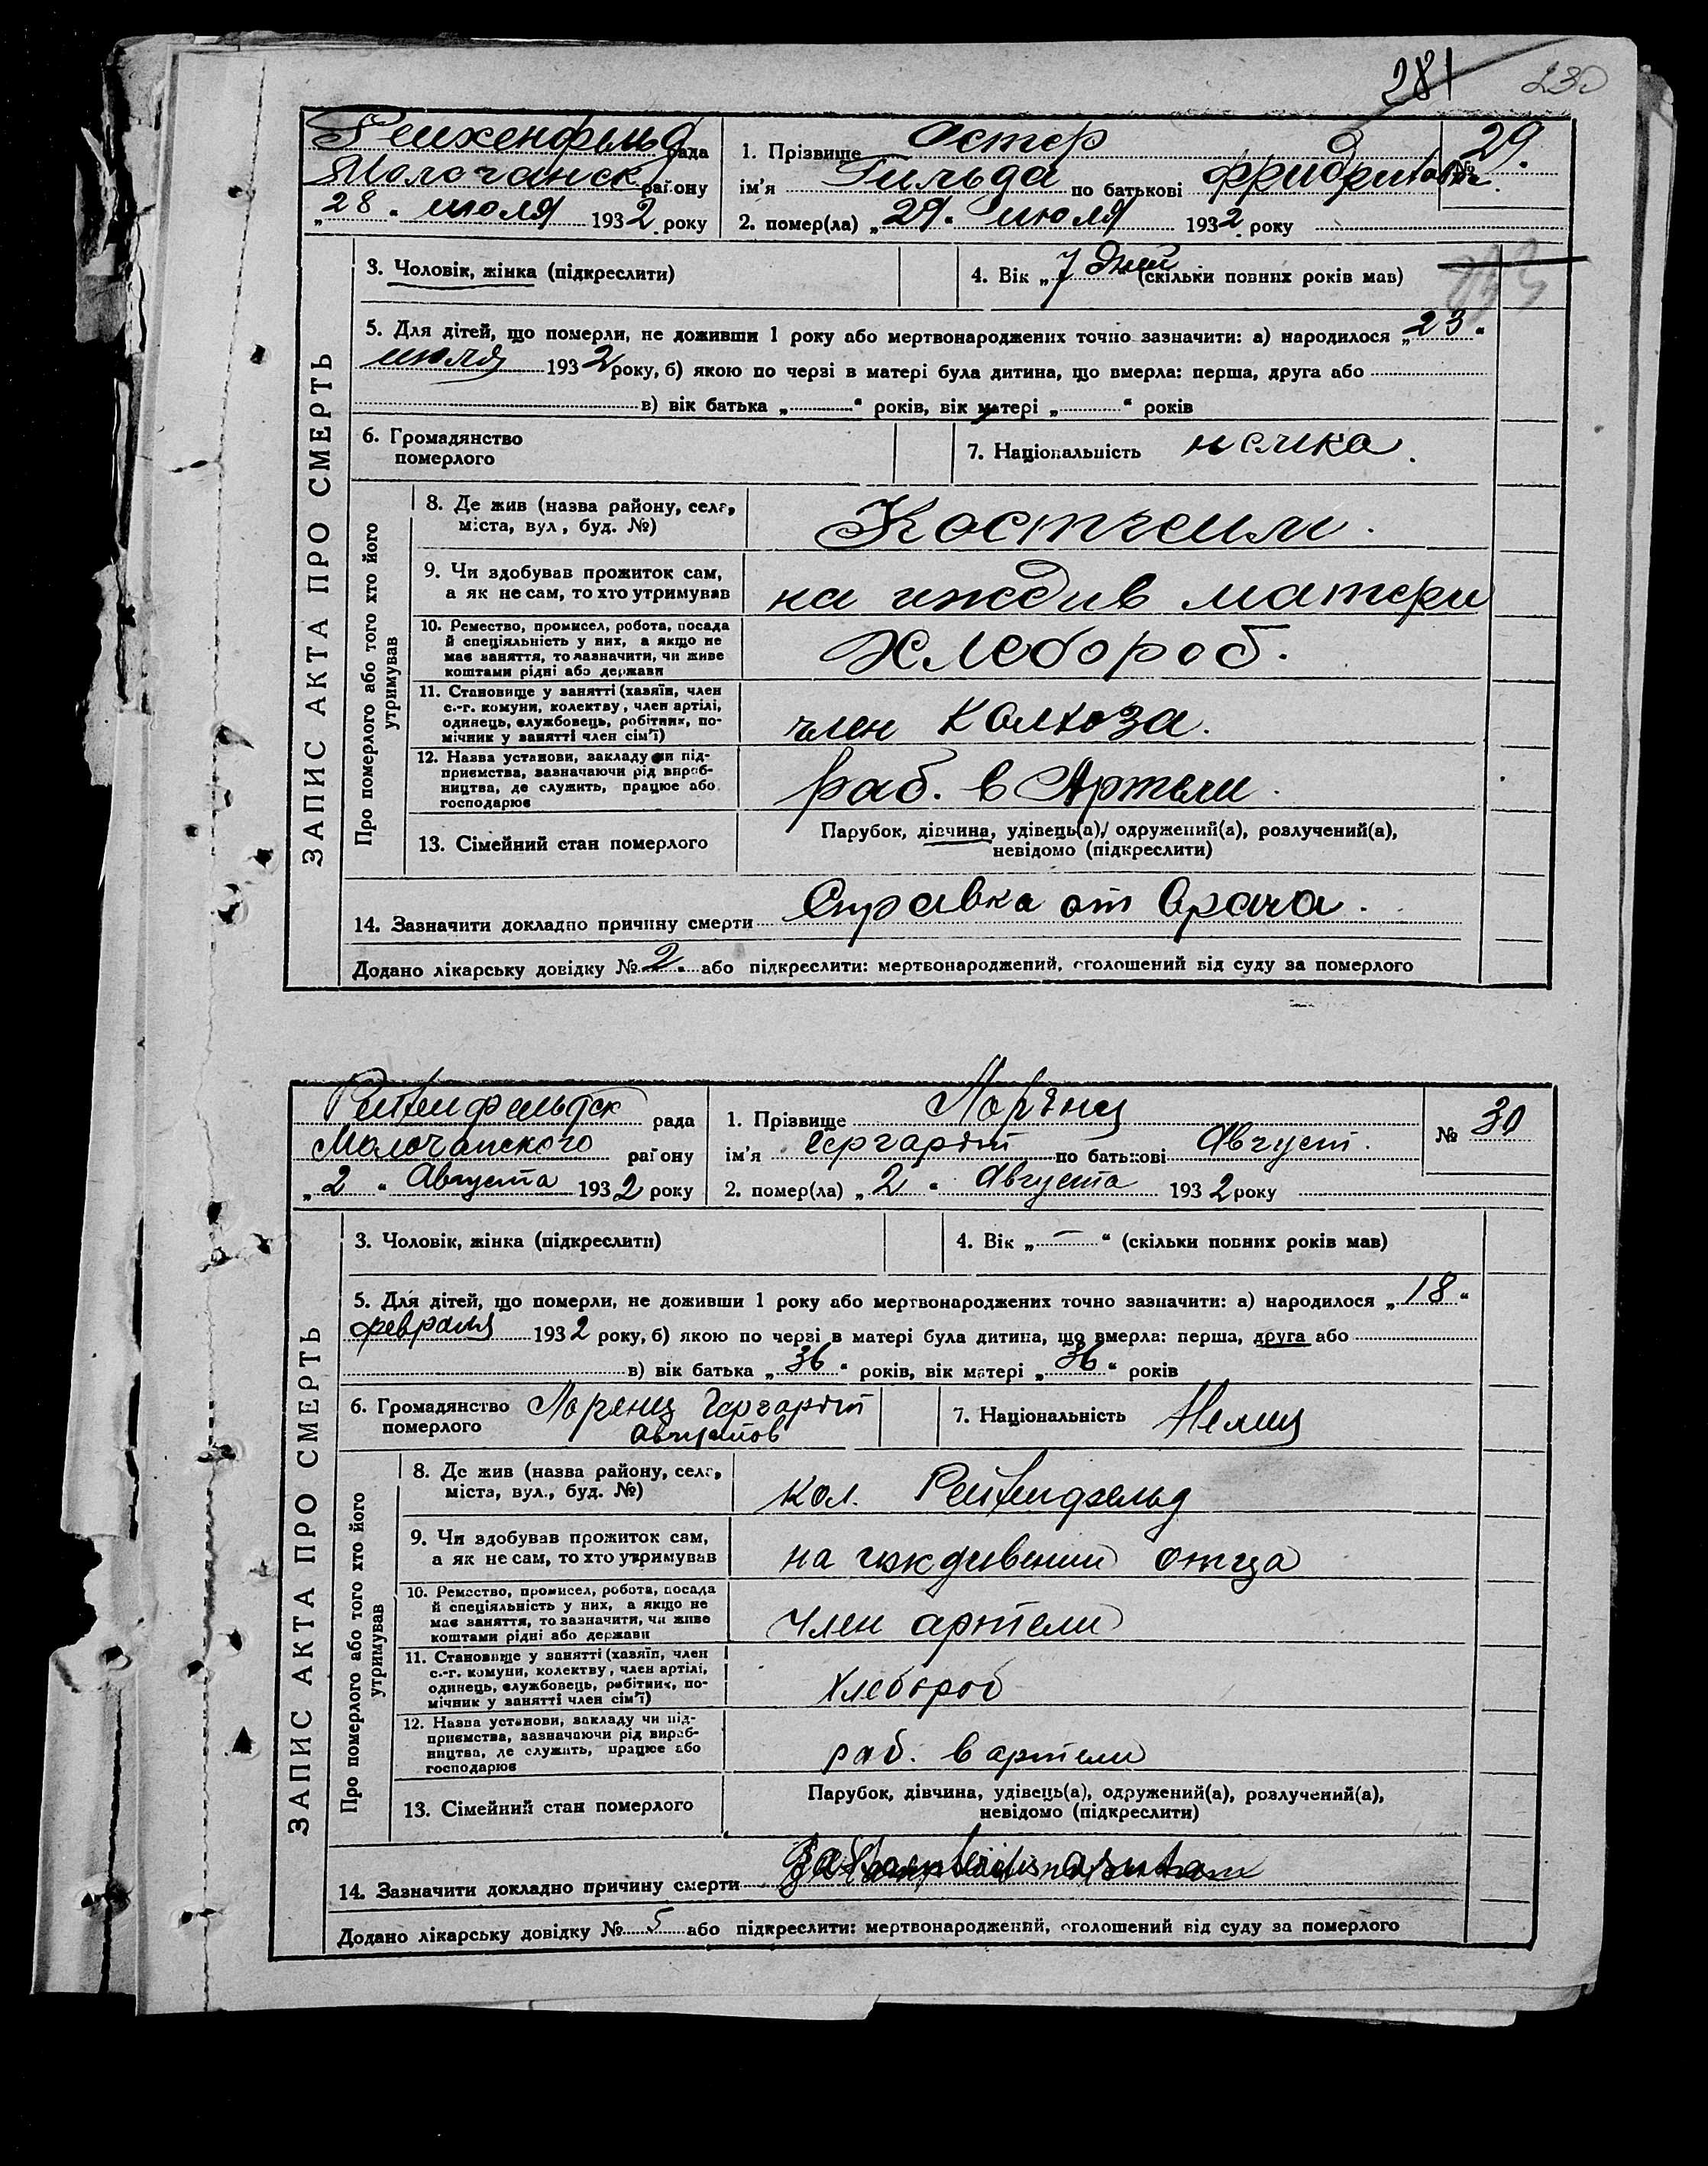 281 230
Рейхенфельд рада
Молочанск району
„28“ июля 1932 року
1. Прізвище Остер
ім'я Гильда по батькові Фридриховна
2. помер(ла) „29“ июля 1932 року
№ 29.
ЗАПИС АКТА ПРО СМЕРТЬ
3. Чоловік, жінка (підкреслити)
4. Вік „7 дней (скільки повних років мав)
5. Для дітей, що померли, не доживши 1 року або мертвонароджених точно зазначити: а) народилося „23“
июля 1932 року, б) якою по черзі в матері була дитина, що вмерла: перша, друга або
в) вік батька „ “ років, вік матері „ “ років
6. Громадянство
померлого
7. Національність немка.
Про померлого або того хто його
утримував
8. Де жив (назва району, села,
міста, вул, буд. №)
Костгейм.
9. Чи здобував прожиток сам,
а як не сам, то хто утримував
на иждив матери
10. Ремество, промисел, робота, посада
й спеціяльність у них, а якщо не
має заняття, то зазначити, чи живе
коштами рідні або держави
Хлебороб.
11. Становище у занятті (хазяїн, член
с.-г. комуни, колектву, член артілі,
одинець, службовець, робітник, по-
мічник у занятті член сім'ї)
член колхоза.
12. Назва установи, закладу чи під-
приємства, зазначаючи рід вироб-
ництва, де служить, працює або
господарює
раб. в Артели.
13. Сімейний стан померлого
Парубок, дівчина, удівець(а), одружений(а), розлучений(а),
невідомо (підкреслити)
14. Зазначити докладно причину смерти Справка от врача.
Додано лікарську довідку № 2. або підкреслити: мертвонароджений, оголошений від суду за померлого
Рейхенфельдск рада
Молочанского району
„2“ Августа 1932 року
1. Прізвище Лоренц
ім'я Гергардт по батькові Август.
2. помер(ла) „2“ Августа 1932 року
№ 30
ЗАПИС АКТА ПРО СМЕРТЬ
3. Чоловік, жінка (підкреслити)
4. Вік „–“ (скільки повних років мав)
5. Для дітей, що померли, не доживши 1 року або мертвонароджених точно зазначити: а) народилося „18“
февраля 1932 року, б) якою по черзі в матері була дитина, що вмерла: перша, друга або
в) вік батька „36“ років, вік матері „36“ років
6. Громадянство Лоренц Гергардт
померлого Августов
7. Національність Немец
Про померлого або того хто його
утримував
8. Де жив (назва району, села,
міста, вул., буд. №)
кол. Рейхенфельд
9. Чи здобував прожиток сам,
а як не сам, то хто утримував
на иждивении отца
10. Ремество, промисел, робота, посада
й спеціяльність у них, а якщо не
має заняття, то зазначити, чи живе
коштами рідні або держави
член артели
11. Становище у занятті (хазяїн, член
с.-г. комуни, колектву, член артілі,
одинець, службовець, робітник, по-
мічник у занятті член сім'ї)
хлебороб
12. Назва установи, закладу чи під-
приємства, зазначаючи рід вироб-
ництва, де служить, працює або
господарює
раб. в артели
13. Сімейний стан померлого
Парубок, дівчина, удівець(а), одружений(а), розлучений(а),
невідомо (підкреслити)
14. Зазначити докладно причину смерти
Додано лікарську довідку № 5 або підкреслити: мертвонароджений, оголошений від суду за померлого